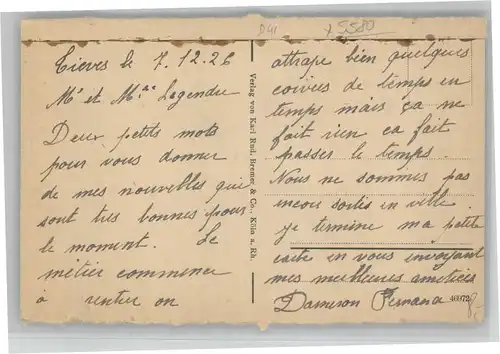 D41
x 5580
Trèves le 7.12.26
Mr et Mme Legendre
Deux petits mots
pour vous donner
de mes nouvelles qui
sont tres bonnes pour
le moment. Le
métier commence
à rentrer on
Verlag von Karl Rud. Bremer & Co., Köln a. Rh.
attrape bien quelques
corvées de temps en
temps mais ça ne
fait rien ca fait
passer le temps.
Nous ne sommes pas
encore sortis en ville
je termine ma petite
carte en vous envoyant
mes meilleures amitiées
Dameron